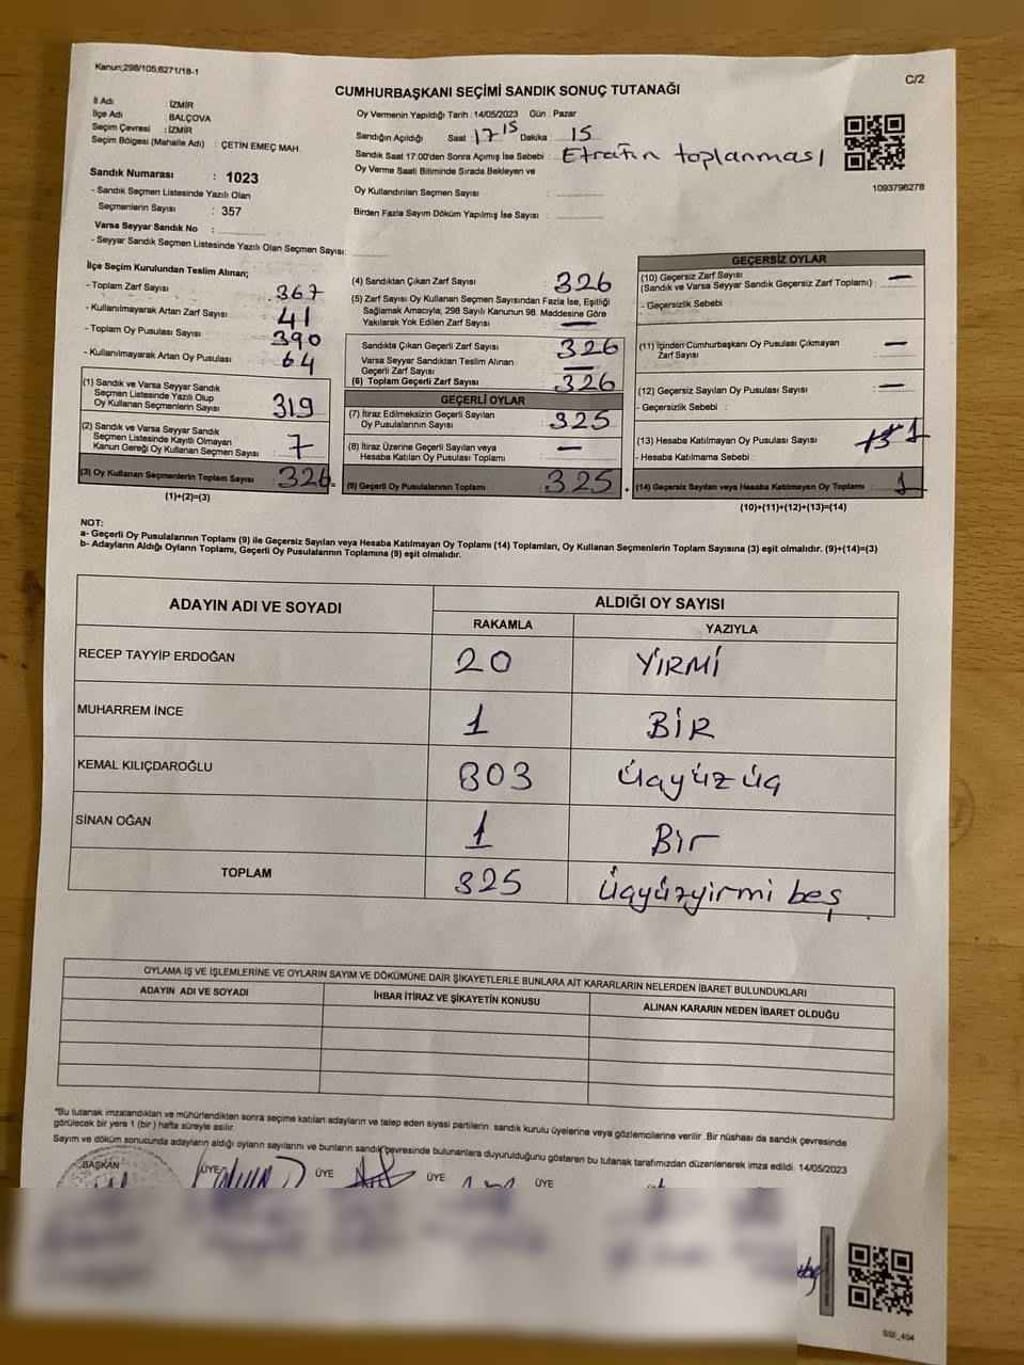 Kanun;298/105;6271/18-1
C/2
CUMHURBAŞKANI SEÇİMİ SANDIK SONUÇ TUTANAĞI
İl Adı : İZMİR
İlçe Adı : BALÇOVA
Seçim Çevresi : İZMİR
Seçim Bölgesi (Mahalle Adı) : ÇETİN EMEÇ MAH.
Sandık Numarası : 1023
- Sandık Seçmen Listesinde Yazılı Olan
Seçmenlerin Sayısı : 357
Varsa Seyyar Sandık No :
- Seyyar Sandık Seçmen Listesinde Yazılı Olan Seçmen Sayısı:
Oy Vermenin Yapıldığı Tarih : 14/05/2023 Gün : Pazar
Sandığın Açıldığı Saat : 17 15 Dakika : 15
Sandık Saat 17:00'den Sonra Açımış İse Sebebi : Etrafın toplanması
Oy Verme Saati Bitiminde Sırada Bekleyen ve
Oy Kullandırılan Seçmen Sayısı :
Birden Fazla Sayım Döküm Yapılmış İse Sayısı :
1093796278
İlçe Seçim Kurulundan Teslim Alınan;
- Toplam Zarf Sayısı 367
- Kullanılmayarak Artan Zarf Sayısı : 41
- Toplam Oy Pusulası Sayısı 390
- Kullanılmayarak Artan Oy Pusulası : 64
(1) Sandık ve Varsa Seyyar Sandık
Seçmen Listesinde Yazılı Olup
Oy Kullanan Seçmenlerin Sayısı 319
(2) Sandık ve Varsa Seyyar Sandık
Seçmen Listesinde Kayıtlı Olmayan
Kanun Gereği Oy Kullanan Seçmen Sayısı : 7
(3) Oy Kullanan Seçmenlerin Toplam Sayısı 326
(1)+(2)=(3)
(4) Sandıktan Çıkan Zarf Sayısı 326
(5) Zarf Sayısı Oy Kullanan Seçmen Sayısından Fazla İse, Eşitliği
Sağlamak Amacıyla, 298 Sayılı Kanunun 98. Maddesine Göre
Yakılarak Yok Edilen Zarf Sayısı —
Sandıkta Çıkan Geçerli Zarf Sayısı 326
Varsa Seyyar Sandıktan Teslim Alınan
Geçerli Zarf Sayısı —
(6) Toplam Geçerli Zarf Sayısı 326
GEÇERLİ OYLAR
(7) İtiraz Edilmeksizin Geçerli Sayılan
Oy Pusulalarının Sayısı 325
(8) İtiraz Üzerine Geçerli Sayılan veya
Hesaba Katılan Oy Pusulası Toplamı —
(9) Geçerli Oy Pusulalarının Toplamı 325
GEÇERSİZ OYLAR
(10) Geçersiz Zarf Sayısı —
(Sandık ve Varsa Seyyar Sandık Geçersiz Zarf Toplamı) :
- Geçersizlik Sebebi
(11) İçinden Cumhurbaşkanı Oy Pusulası Çıkmayan
Zarf Sayısı —
(12) Geçersiz Sayılan Oy Pusulası Sayısı —
- Geçersizlik Sebebi :
(13) Hesaba Katılmayan Oy Pusulası Sayısı 1
- Hesaba Katılmama Sebebi
(14) Geçersiz Sayılan veya Hesaba Katılmayan Oy Toplamı 1
(10)+(11)+(12)+(13)=(14)
NOT:
a- Geçerli Oy Pusulalarının Toplamı (9) ile Geçersiz Sayılan veya Hesaba Katılmayan Oy Toplamı (14) Toplamları, Oy Kullanan Seçmenlerin Toplam Sayısına (3) eşit olmalıdır. (9)+(14)=(3)
b- Adayların Aldığı Oyların Toplamı, Geçerli Oy Pusulalarının Toplamına (9) eşit olmalıdır.
ADAYIN ADI VE SOYADI
ALDIĞI OY SAYISI
RAKAMLA YAZIYLA
RECEP TAYYİP ERDOĞAN 20 YİRMİ
MUHARREM İNCE 1 BİR
KEMAL KILIÇDAROĞLU 303 üçyüz üç
SİNAN OĞAN 1 Bir
TOPLAM 325 üçyüzyirmi beş
OYLAMA İŞ VE İŞLEMLERİNE VE OYLARIN SAYIM VE DÖKÜMÜNE DAİR ŞİKAYETLERLE BUNLARA AİT KARARLARIN NELERDEN İBARET BULUNDUKLARI
ADAYIN ADI VE SOYADI İHBAR İTİRAZ VE ŞİKAYETİN KONUSU ALINAN KARARIN NEDEN İBARET OLDUĞU
"Bu tutanak imzalandıktan ve mühürlendikten sonra seçime katılan adayların ve talep eden siyasi partilerin sandık kurulu üyelerine veya gözlemcilerine verilir. Bir nüshası da sandık çevresinde
görülecek bir yere 1 (bir) hafta süreyle asılır.
Sayım ve döküm sonucunda adayların aldığı oyların sayılarını ve bunların sandık çevresinde bulunanlara duyurulduğunu gösteren bu tutanak tarafımızdan düzenlenerek imza edildi. 14/05/2023
BAŞKAN ÜYE ÜYE ÜYE ÜYE